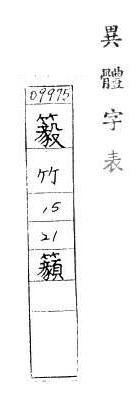 異體字表
09975
竹
15
21